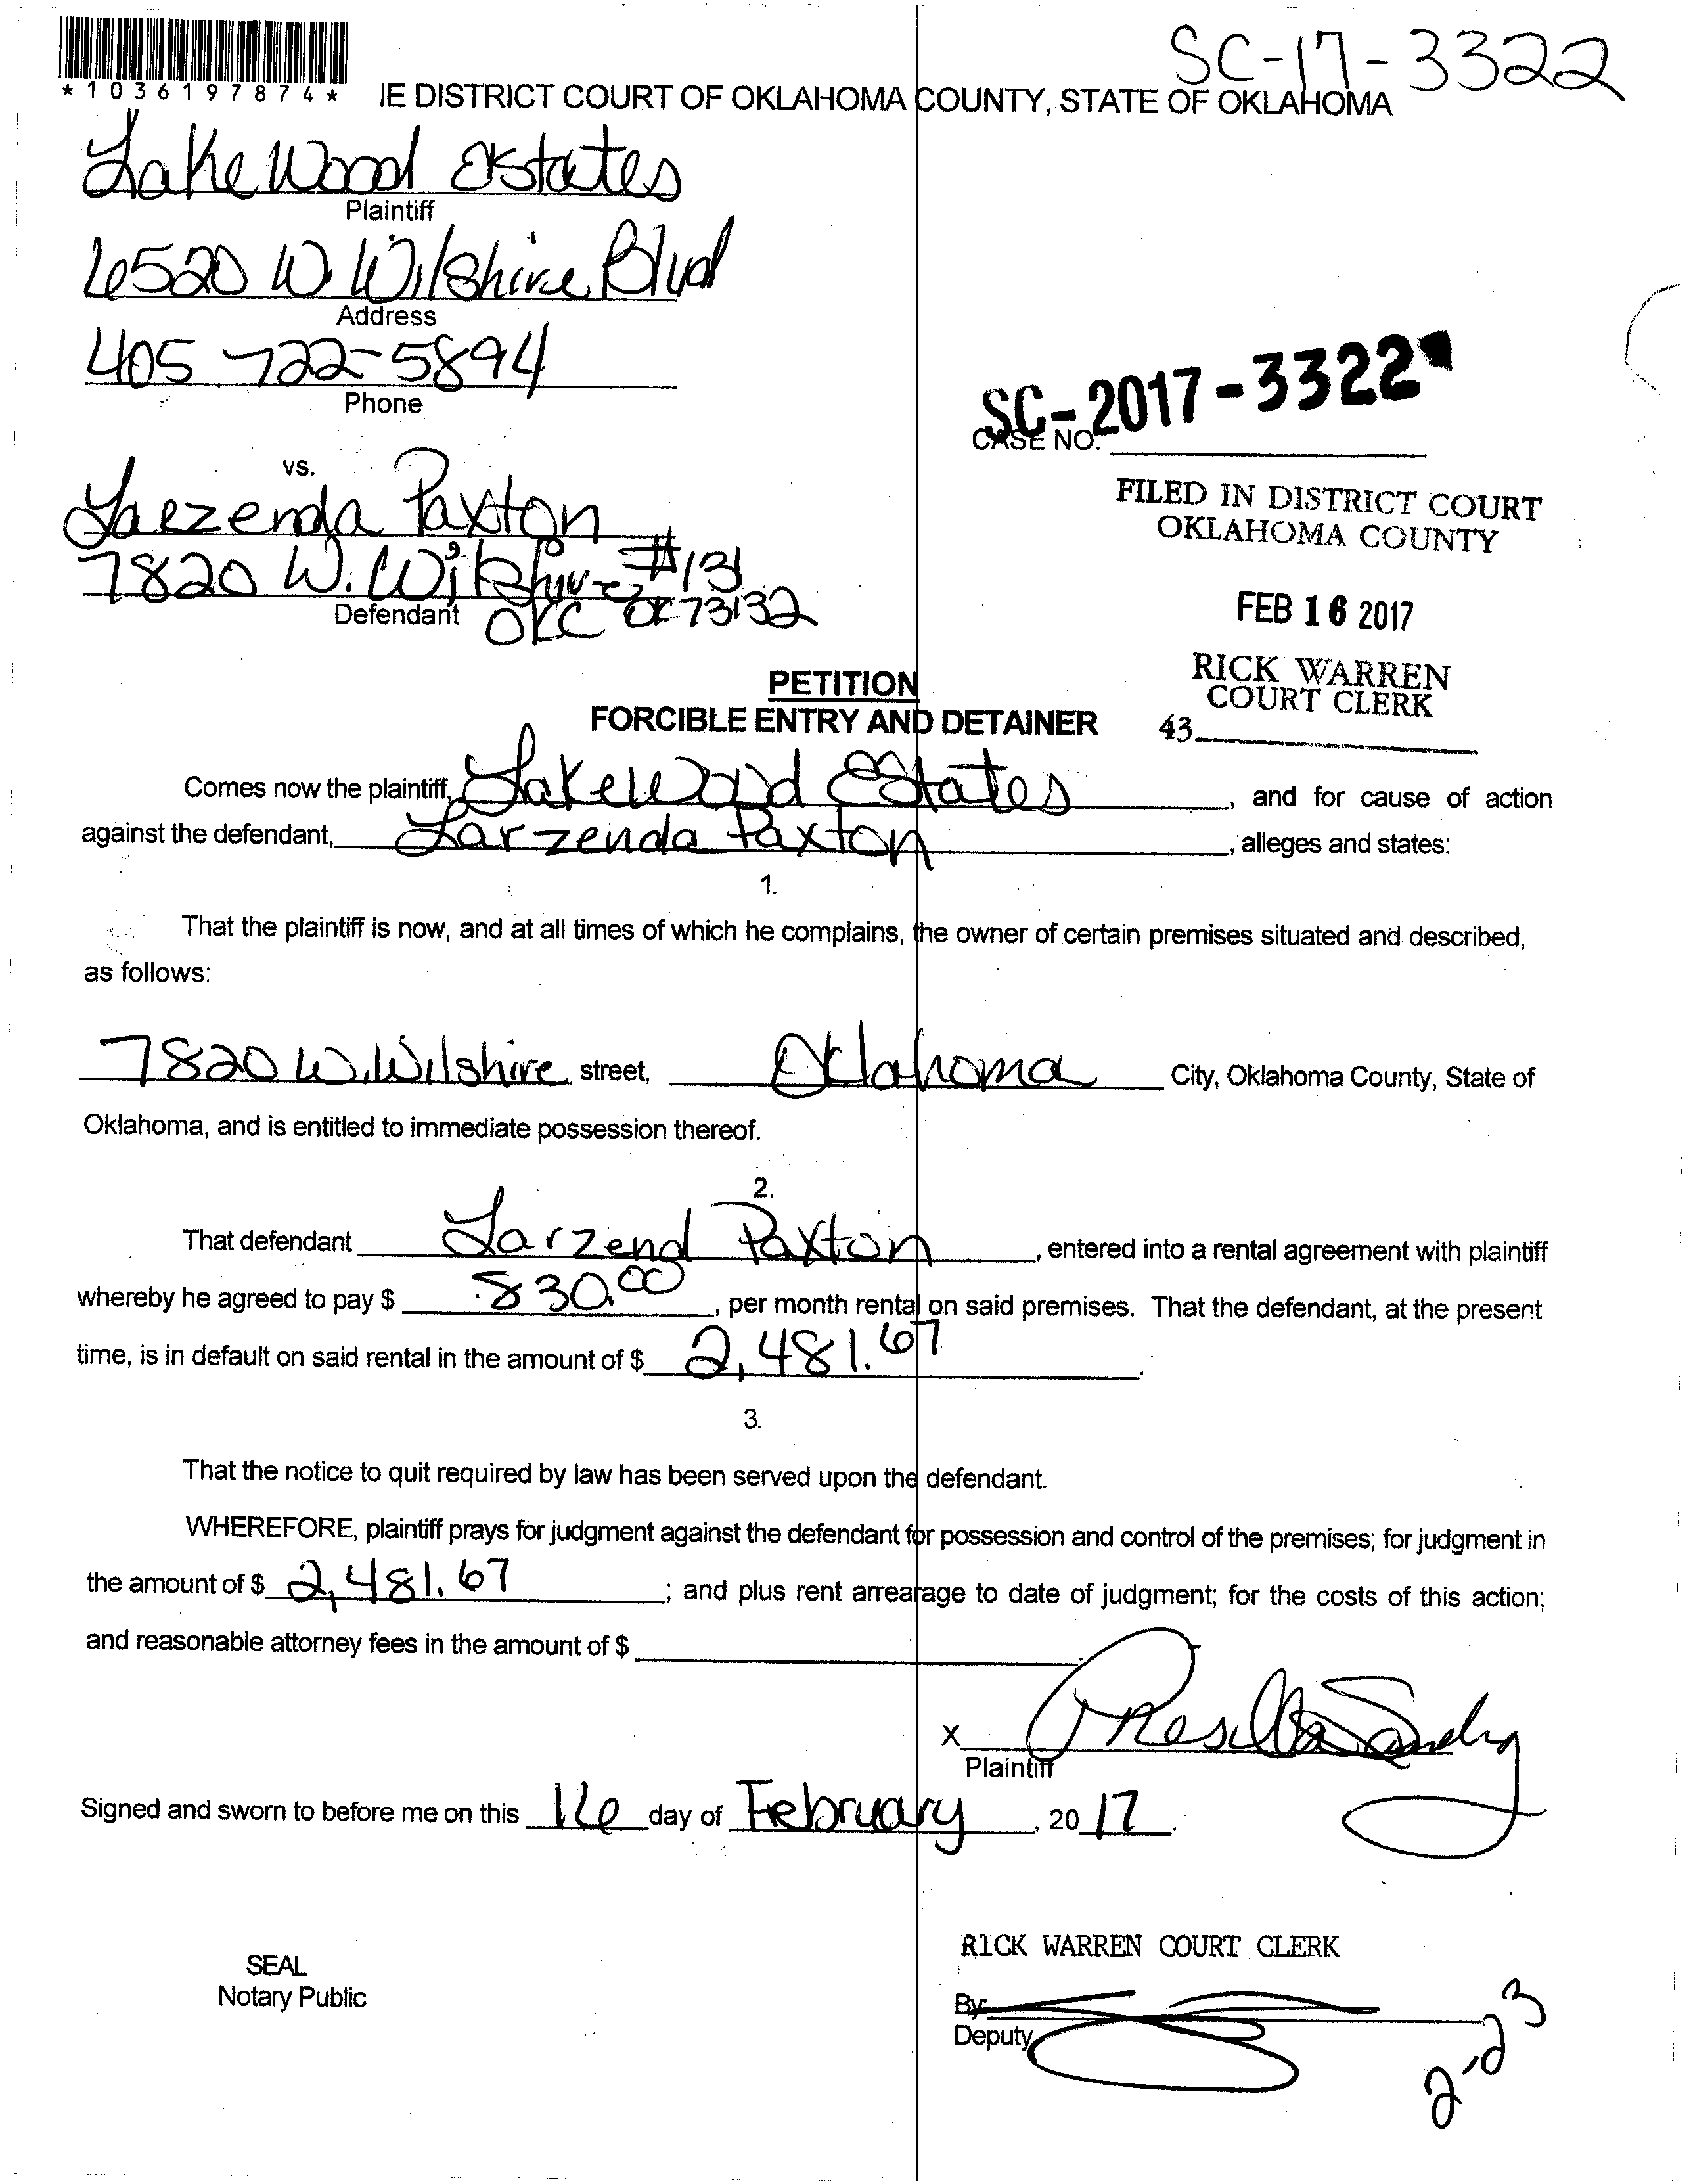 SC-17-3322
*1036197874*
IE DISTRICT COURT OF OKLAHOMA COUNTY, STATE OF OKLAHOMA
Lake Wood Estates
Plaintiff
6520 W. Wilshire Blvd
Address
405 722-5894
Phone
SC-2017-3322
CASE NO.
vs.
FILED IN DISTRICT COURT
OKLAHOMA COUNTY
Larzenda Paxton
7820 W. Wilshire #131
Defendant OKC OK 73132
FEB 16 2017
RICK WARREN
COURT CLERK
43
PETITION
FORCIBLE ENTRY AND DETAINER
Comes now the plaintiff, Lakewood Estates, and for cause of action
against the defendant, Larzenda Paxton, alleges and states:
1.
That the plaintiff is now, and at all times of which he complains, the owner of certain premises situated and described,
as follows:
7820 W. Wilshire street, Oklahoma City, Oklahoma County, State of
Oklahoma, and is entitled to immediate possession thereof.
2.
That defendant Larzend Paxton, entered into a rental agreement with plaintiff
whereby he agreed to pay $ 830.00, per month rental on said premises. That the defendant, at the present
time, is in default on said rental in the amount of $ 2,481.67.
3.
That the notice to quit required by law has been served upon the defendant.
WHEREFORE, plaintiff prays for judgment against the defendant for possession and control of the premises; for judgment in
the amount of $ 2,481.67; and plus rent arrearage to date of judgment; for the costs of this action;
and reasonable attorney fees in the amount of $
X
Plaintiff
Signed and sworn to before me on this 16 day of February, 2017.
RICK WARREN COURT CLERK
SEAL
Notary Public
By:
Deputy
2-23